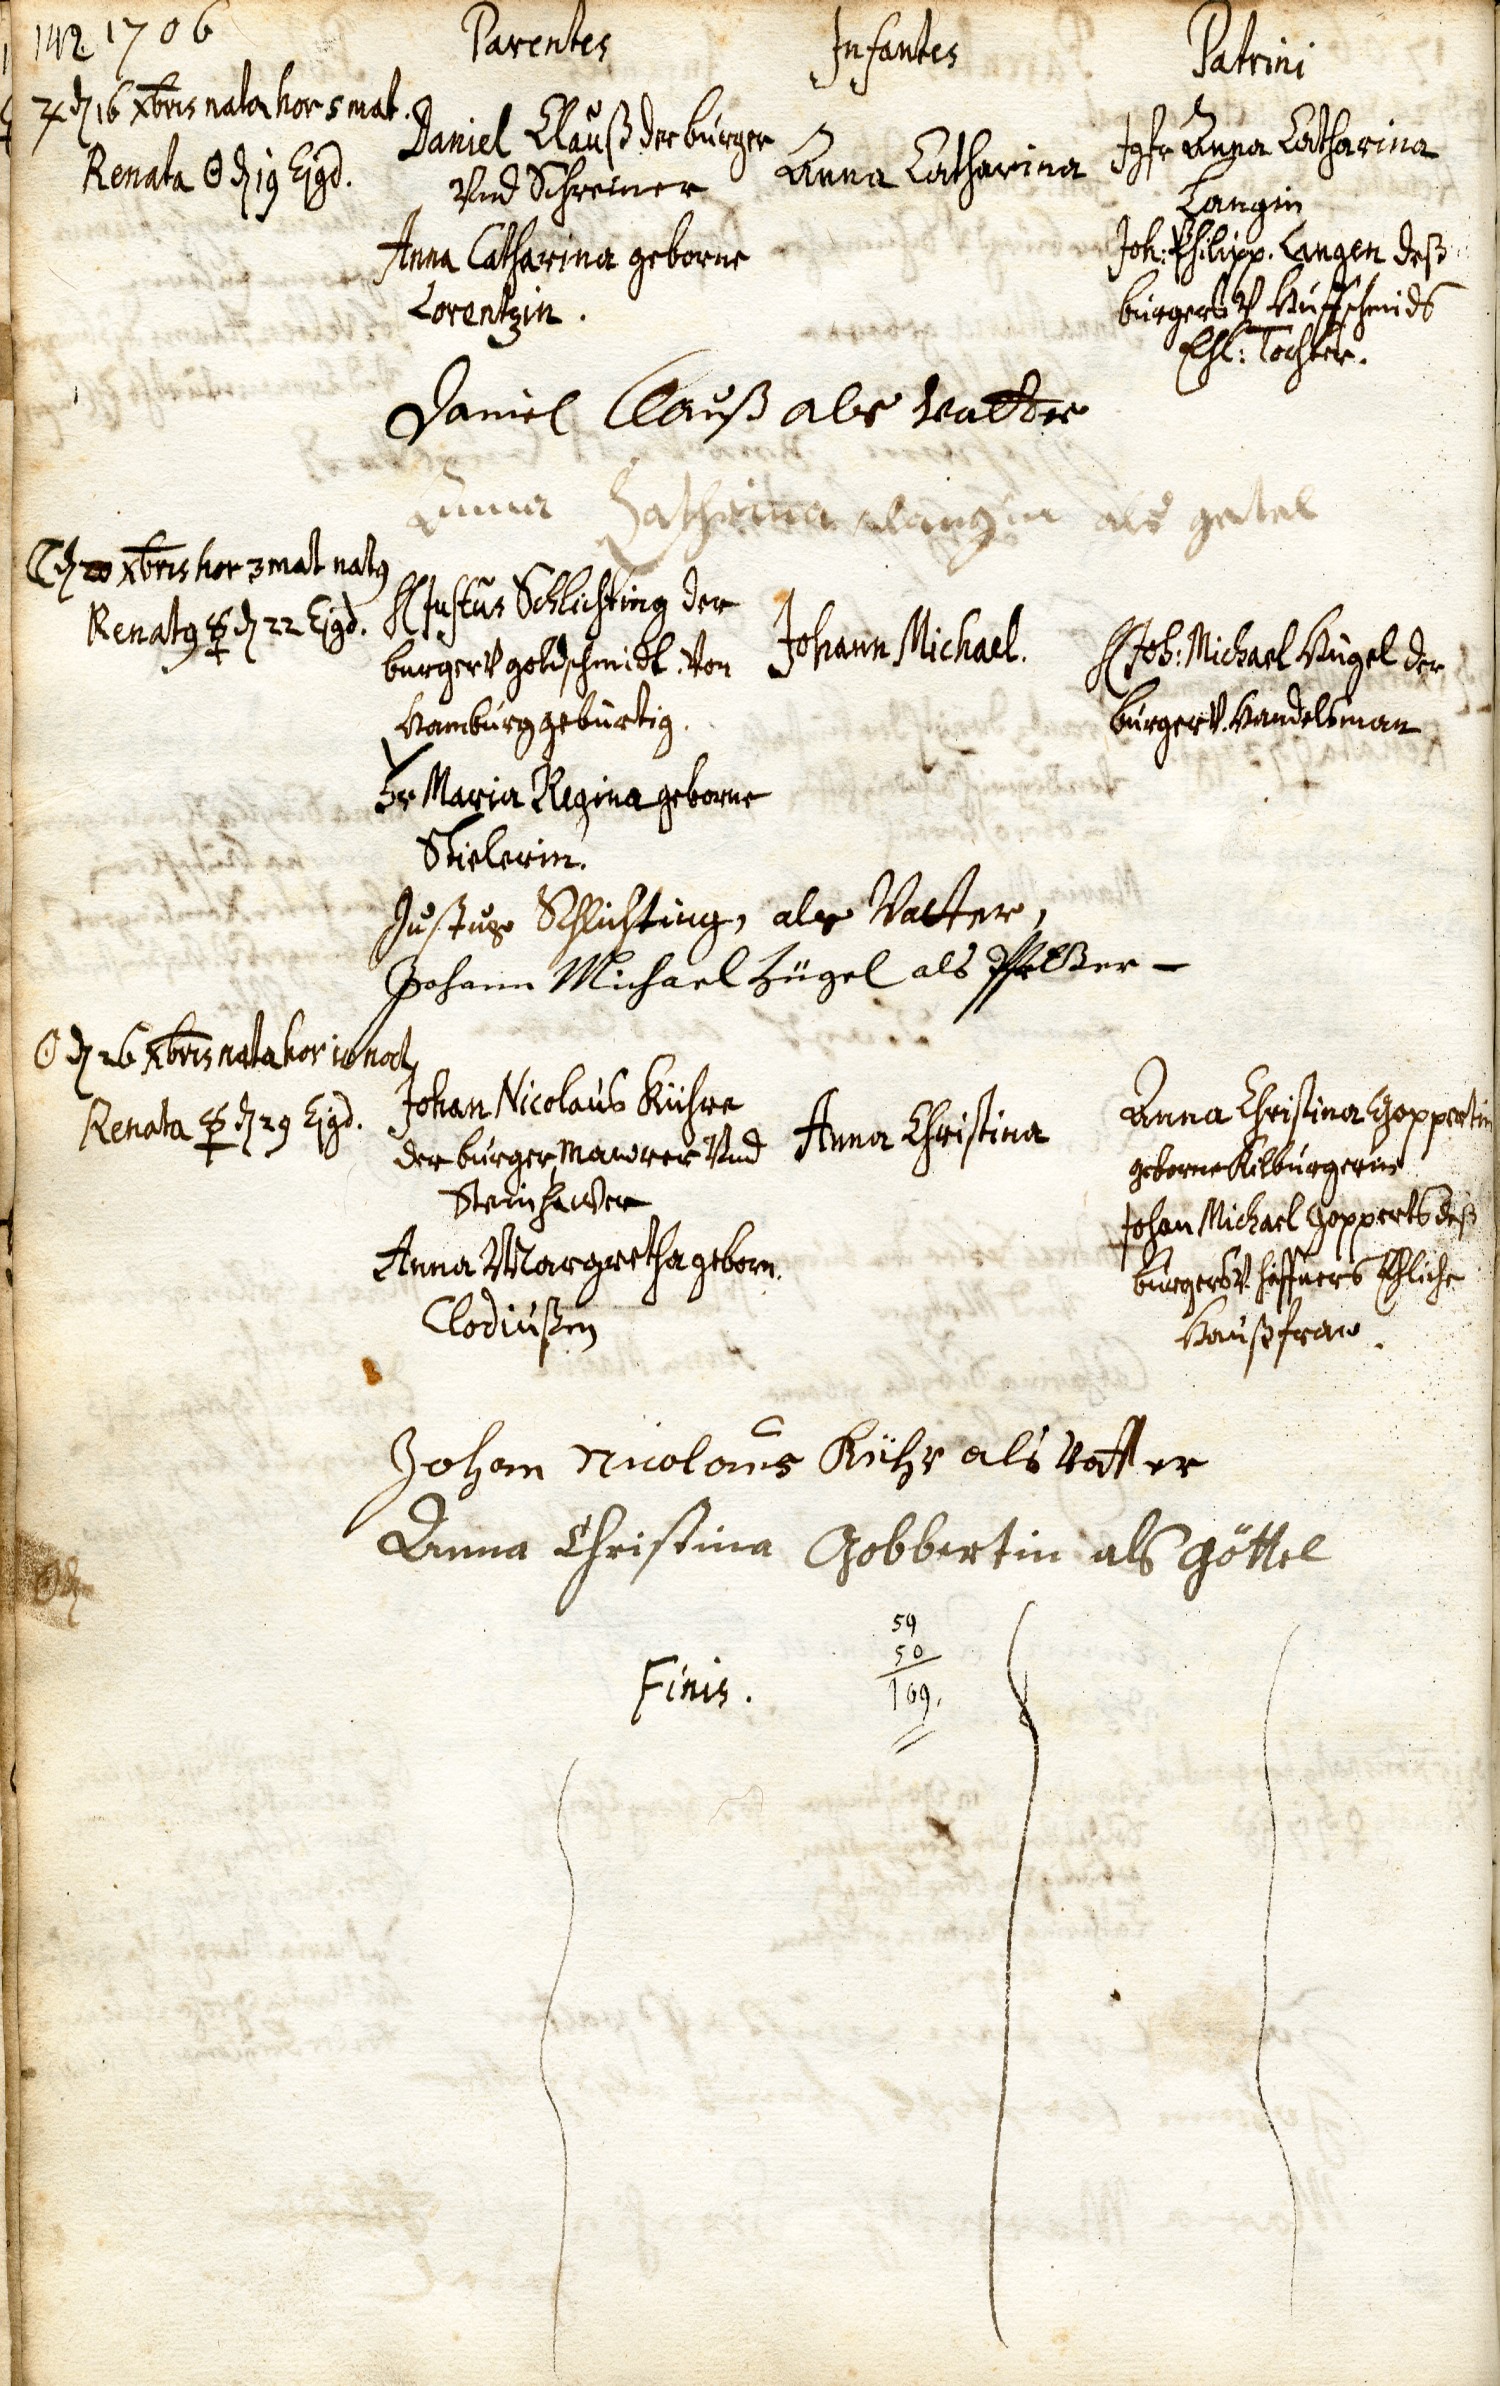 142. 1706
Parentes
Infantes
Patrini
♃ d 16 Xbris nata hor 5 mat.
Renata ☉ d 19 Ejgd.
Daniel Clauß der burger
Und Schreiner
Anna Catharina geborne
Lorentzin.
Anna Catharina
Jgfr Anna Catharina
Langin
Joh: Philipp. Langen deß
burgers V Huffschmids
Ehl: Tochter.
Daniel Clauß als Vatter
Anna Cathrina langin als getel
☾ d 20 Xbris hor 3 mat nat9
Renat9 ☿ d 22 Ejgd.
H Justus Schlichting der
burger V goldschmidt. Von
Hamburg gebürtig.
Fr Maria Regina geborne
Stielerin.
Johann Michael.
H Joh: Michael Hügel der
burger V. Handelsman
Justus Schlichting, als Vatter,
Johann Michael Hügel als Pfetter –
☉ d 26 Xbris nata hor 10 noct
Renata ☿ d 29 Ejgd.
Johan Nicolaus Kühre
der burger Mawrer Und
Steinhawer
Anna Margretha geborn.
Clodiußen
Anna Christina
Anna Christina Goppertin
geborne Kilburgerin
Johan Michael Gopperts deß
burgers V. Häffners Ehliche
Haußfraw.
Johan Nicolaus Kühr als Vatter
Anna Christina Gobbertin als Göttel
59
50
109.
Finis.